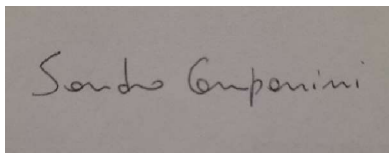 Sandro Camponini